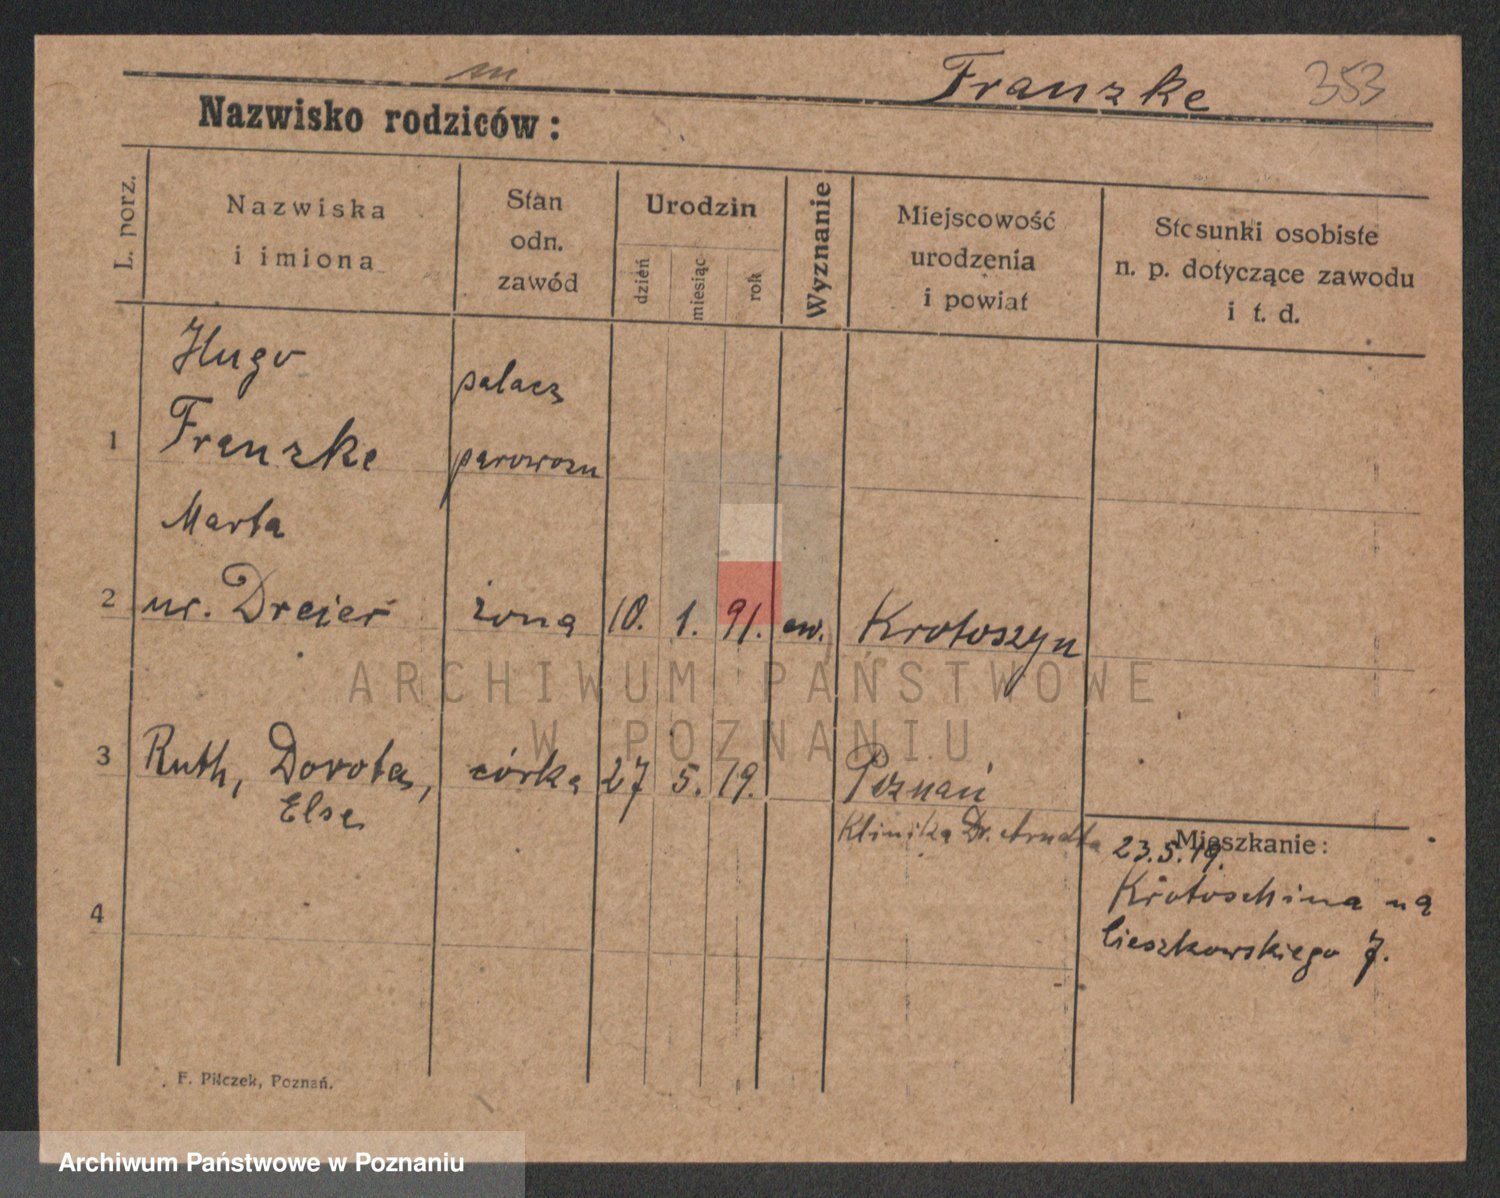 Franzke 353
Nazwisko rodziców:
L. porz.
Nazwiska
i imiona
Stan
odn.
zawód
Urodzin
dzień
miesiąc
rok
Wyznanie
Miejscowość
urodzenia
i powiat
Stosunki osobiste
n. p. dotyczące zawodu
i t. d.
Hugo palacz
1 Franzke parowozu
Marta
2 ur. Dreier żona 10. 1. 91. ew. Krotoszyn
3 Ruth, Dorota, córka 27 5. 19. Poznań
Else Klinika Dr. Arndta
Mieszkanie:
23.5.19.
Krotoschina na
Cieszkowskiego 7.
4
F. Pilczek, Poznań.
ARCHIWUM PAŃSTWOWE
W POZNANIU
Archiwum Państwowe w Poznaniu